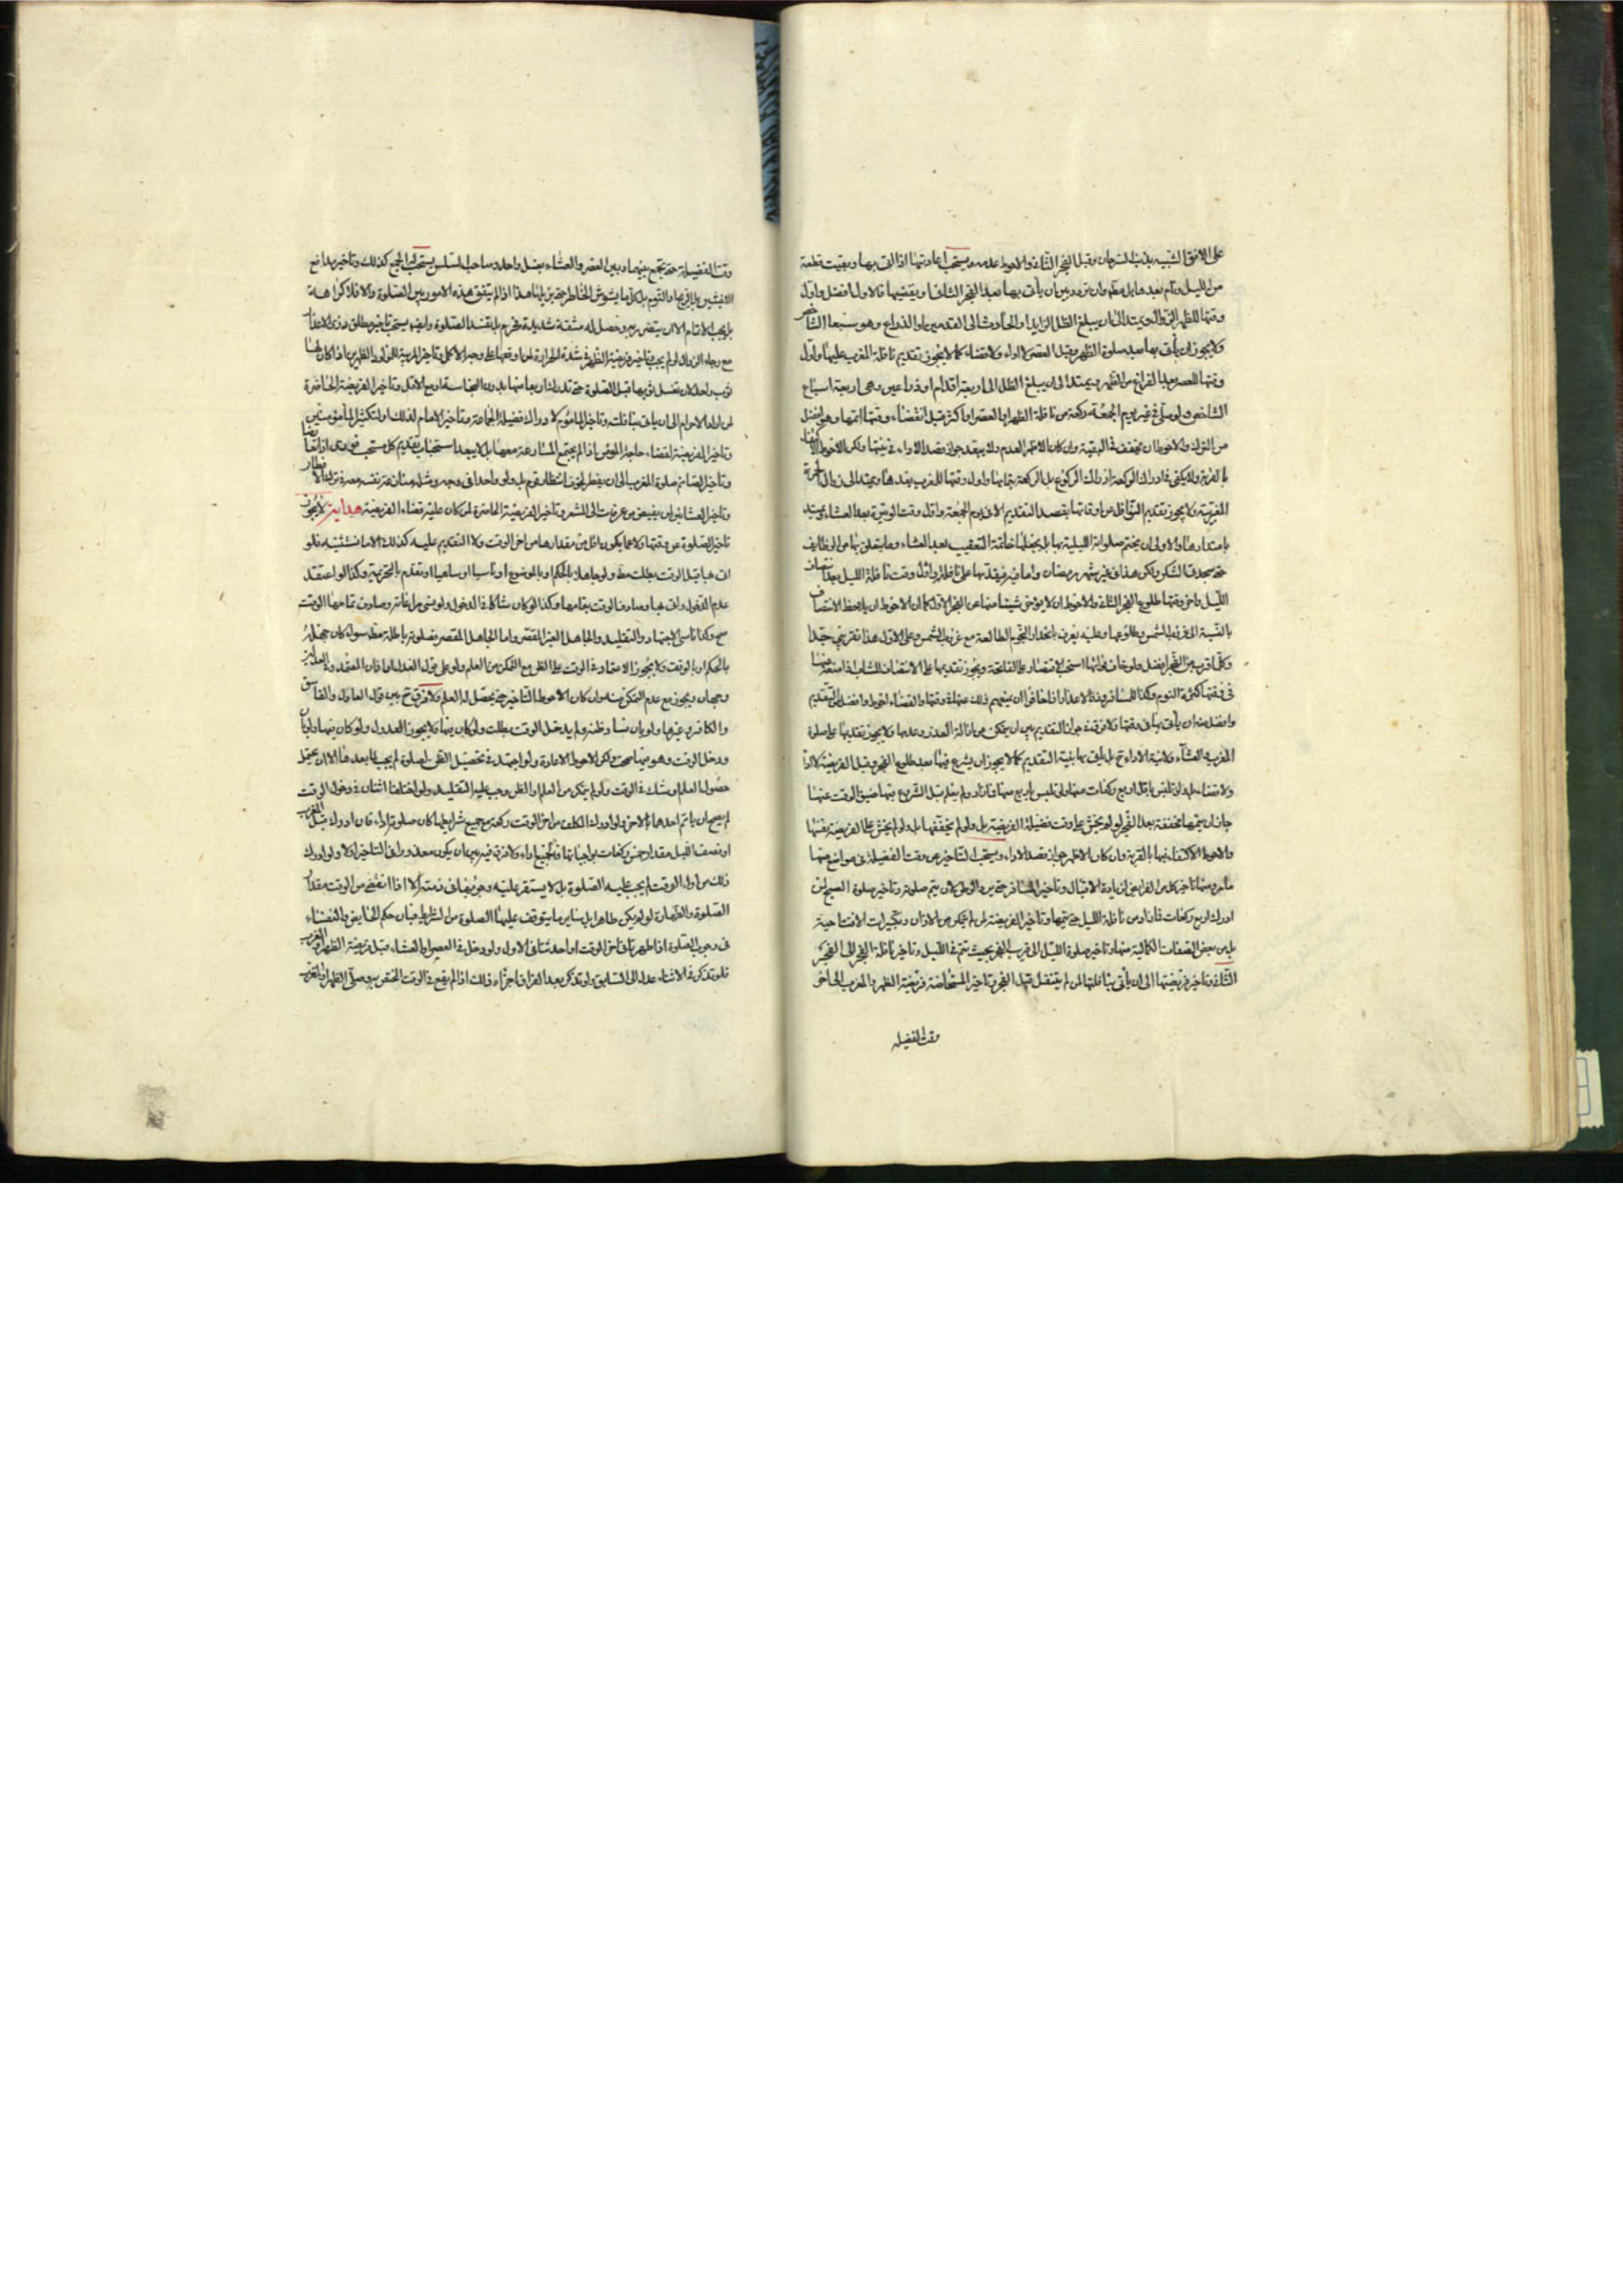 على الافق الشبيه بذنب السرحان وقبل الفجر الثاني والاحوط عدمه ويستحب اعادتها اذا اتى بها وبقيت قطعة
من الليل ونام بعدها بل مطلقا وان تردد بين ان يأتى بها بعد الفجر الثاني او يقضيها فالاول افضل واول
وقتها للظهر الزوال ويمتد الى ان يبلغ الظل الزايد او الحادث الى القدمين او الذراع وهو سبعا الشاخص
ولا يجوز ان يأتى بها بعد صلوة الظهر وقبل العصر لا اداء ولا قضاء كما لا يجوز تقديم نافلة المغرب عليها واول
وقتها للعصر بعد الفراغ من الظهر ويمتد الى ان يبلغ الظل الى اربعة اقدام او ذراعين وهى اربعة اسباع
الشاخص ولو صلى في غير يوم الجمعة ركعة من نافلة الظهر او العصر او اكثر قبل انقضاء وقتها اتمها وهى افضل
من الترك والاحوط ان يخفف في البقية وان كان الاظهر العدم ولا يبعد جواز قصد الاداء في بقيتها ولكن الاحوط الاكتفاء
بالقربة ولا يكفى في ادراك الركعة ادراك الركوع بل الركعة بتمامها واول وقتها للمغرب بعدها ويمتد الى زوال الحمرة
المغربية ولا يجوز تقديم النوافل من اوقاتها بقصد التقديم الا في يوم الجمعة واول وقت الوتيرة بعد العشاء ويمتد
بامتدادها والاولى ان يختم صلواته الليلية بها بل يجعلها خاتمة التعقيب بعد العشاء وما يتعلق بها من الوظايف
حتى سجدتى الشكر ولكن هذا في غير شهر رمضان واما فيه فيقدمها على نافلته واول وقت نافلة الليل بعد انتصاف
الليل واخر وقتها طلوع الفجر الثاني والاحوط ان لا يؤخر شيئا منها عن الفجر الاول كما ان الاحوط ان يلاحظ الانتصاف
بالنسبة الى غروب الشمس وطلوعها وعليه يعرف بانحدار النجوم الطالعة مع غروب الشمس وعلى الاول هذا تقريبي جدا
وكلما قرب من الفجر افضل ولو خاف فواتها استحب الاقتصار على الفاتحة ويجوز تقديمها على الانتصاف للشاب اذا منعه منها
في وقتها كثرة النوم وكذا للمسافر وذوى الاعذار اذا خافوا ان يمنعهم ذلك عنها في وقتها والقضاء احوط وافضل من التقديم
وافضل منه ان يأتى بها في وقتها ولا فرق في جواز التقديم بين ان يتمكن من ازالة العذر وعدمها ولا يجوز تقديمها على صلوة
المغرب والعشاء ولا نية الاداء ح بل يأتى بها بنية التقديم كما لا يجوز ان يشرع فيها بعد طلوع الفجر وقبل الفريضة لا اداء
ولا قضاء
جاز ان يتمها مخففة بعد الفجر لو لم يخش على وقت فضيلة الفريضة بل ولو لم يخففها بل ولو لم يخش على الفريضة نفسها
والاحوط الاكتفاء فيها بالقربة وان كان الاظهر جواز قصد الاداء ويستحب التاخير عن وقت الفضيلة في مواضع منها
ما مر ومنها تاخير كل من الفرايض لزيادة الاقبال وتاخير المسافر حتى ينزل والوطى لان يتم صلوته وتاخير صلوة الصبح لمن
ادرك اربع ركعات فازاد من نافلة الليل حتى يتمها وتاخير الفريضة لمن لم يتمكن من الاذان وتكبيرات الافتتاحية
بل من بعض الصفات الكمالية منها وتاخير صلوة الليل الى قرب الفجر بحيث تتم في الليل وتاخير نافلة الفجر الى الفجر
الثاني وتاخير فريضتها الى ان يأتى بنافلتها لمن لم يتنفل قبل الفجر وتاخير المستحاضة فريضة الظهر والمغرب الى اخر
وقت الفضيلة
وقت الفضيلة حتى تجمع بينهما وبين العصر والعشاء بغسل واحد وصاحب السلس يستحب له الجمع كذلك وتاخير مدافع
الاخبثين
بل يجب الاتمام الا ان يتضرر به وحصل له مشقة شديدة
مع رجاء الزوال
ثوب واحد لان تغسل ثوبها قبل الصلوة
لمن اراد الاحرام الى ان ياتى بنافلته وتاخير المأموم لادراك فضيلة الجماعة وتاخير الامام لذلك او لتكثير المأمومين
وتاخير الفريضة لقضاء حاجة المؤمن اذا لم يجتمع المسارعة معها بل لا يبعد استحباب تقديم كل مستحب فورى
وتاخير الصائم صلوة المغرب الى ان يفطر لخوف انتظار قوم بل ولو واحد
وتاخير العشائين لمن يفيض من عرفات الى المشعر وتاخير الفريضة الحاضرة لمن كان عليه قضاء الفريضة هداية لا يجوز
تاخير الصلوة عن وقتها ولا عما يكون اقل من مقدارها من اخر الوقت ولا التقديم عليه كذلك الا ما نستثنيه فلو
اتى بها قبل الوقت بطلت مطلقا ولو جاهلا بالحكم او بالموضوع او ناسيا او ساهيا او تقدم بالتحريمة وكذا لو اعتقد
عدم الدخول واتى بها وصادف الوقت بتمامها وكذا لو كان شاكا في الدخول ولو نسى مراعاته وصادف تمامها الوقت
صح وكذا ناسى الاجتهاد والتقليد والجاهل الغير المقصر واما الجاهل المقصر فصلوته باطلة مطلقا سواء كان جهله
بالحكم او بالوقت ولا يجوز الاعتماد في الوقت على الظن مع التمكن من العلم ولو على قول العدل اما
وجهان ويجوز مع عدم التمكن منه وان كان الاحوط التاخير حتى يحصل له العلم ولا فرق ح بين قول العادل والفاسق
والكافر وغيرها ولو بان فساد ظنه ولم يدخل الوقت بطلت ولو كان فيها ولا يجوز العدول ولو كان فيها وبان
ودخل الوقت وهو فيها صحت ولكن الاحوط الاعادة ولو اجتهد في تحصيل الظن لصلوة لم يجب لما بعدها الا ان يحتمل
حصول العلم او شك في الوقت ولو لم يتمكن من العلم والظن وجب عليه التقليد ولو اختلفا اثنان في دخول الوقت
لم يصح ان ياتم احدهما بالاخر ولو ادرك المكلف من اخر الوقت ركعة مع جميع شرايطها كان صلوته اداء فان ادرك قبل المغرب
او نصف الليل مقدار خمس ركعات بواجباتها فالجميع اداء ولا فرق فيه بين ان يكون معذورا في التاخير او لا ولو ادرك
ذلك من اول الوقت لم يجب عليه الصلوة بل لا يستقر عليه وجوبها في ذمته الا اذا انقضى من الوقت مقدار
الصلوة والطهارة لو لم يكن طاهرا بل سائر ما يتوقف عليها الصلوة من الشرايط فبان حكم الحايض والنفساء
في وجوب الصلوة اذا طهرتا في اخر الوقت او احدثتا في الاول ولو دخل في العصر او العشاء قبل فريضة الظهر والمغرب
فلو تذكر في الاثناء عدل الى السابق ولو تذكر بعد الفراغ اجزاء ذلك اذا لم يقع في الوقت المختص به وصلى الظهر او المغرب